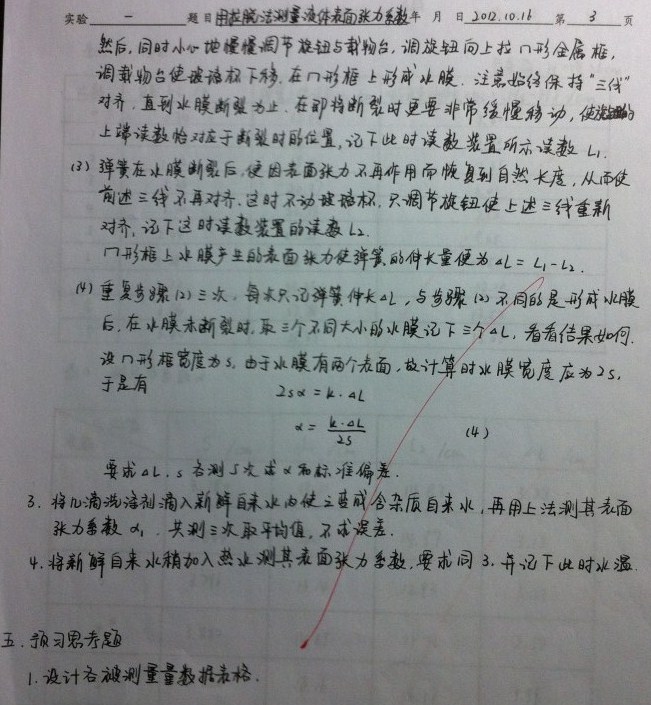 实验 一 题目 用拉脱法测量液体表面张力系数 年 月 日 2012.10.16 第 3 页
然后,同时小心地慢慢调节旋钮与载物台,调旋钮向上拉冂形金属框,
调载物台使玻璃杯下移,在冂形框上形成水膜. 注意始终保持“三线”
对齐,直到水膜断裂为止.在即将断裂时更要非常缓慢移动,使
上端读数恰对应于断裂时的位置,记下此时读数装置所示读数 L₁.
(3) 弹簧在水膜断裂后,便因表面张力不再作用而恢复到自然长度,从而使
前述三线不再对齐.这时不动玻璃杯,只调节旋钮使上述三线重新
对齐,记下这时读数装置的读数L₂.
冂形框上水膜产生的表面张力使弹簧的伸长量便为 ΔL = L₁-L₂.
(4) 重复步骤(2)三次,每次只记弹簧伸长ΔL,与步骤(2)不同的是形成水膜
后,在水膜未断裂时,取三个不同大小的水膜记下三个ΔL,看看结果如何.
设冂形框宽度为s,由于水膜有两个表面,故计算时水膜宽度应为2s,
于是有 2sα = k·ΔL
α = k·ΔL / 2s (4)
要求ΔL、s各测5次求α和标准偏差.
3. 将几滴洗洁剂滴入新鲜自来水内使之变成含杂质自来水,再用上法测其表面
张力系数α₁. 共测三次取平均值,不求误差.
4. 将新鲜自来水稍加入热水测其表面张力系数,要求同3.并记下此时水温.
五. 预习思考题
1. 设计各被测量量数据表格.